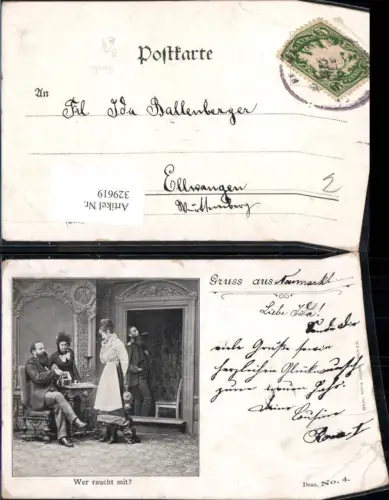 Postkarte
An
Frl Ida Ballenberger
Ellwangen
Württemberg
2
Artikel Nr.
329619
Gruss aus Neumarkt
Liebe Ida!
viele Grüsse sowie
herzlichen Glück
zum neuen Jahr.
Deine Cousine
Wer raucht mit?
Dess. No. 4.